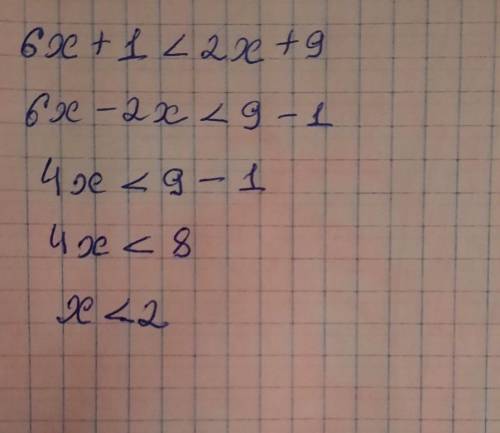 6x + 1 < 2x + 9
6x - 2x < 9 - 1
4x < 9 - 1
4x < 8
x < 2